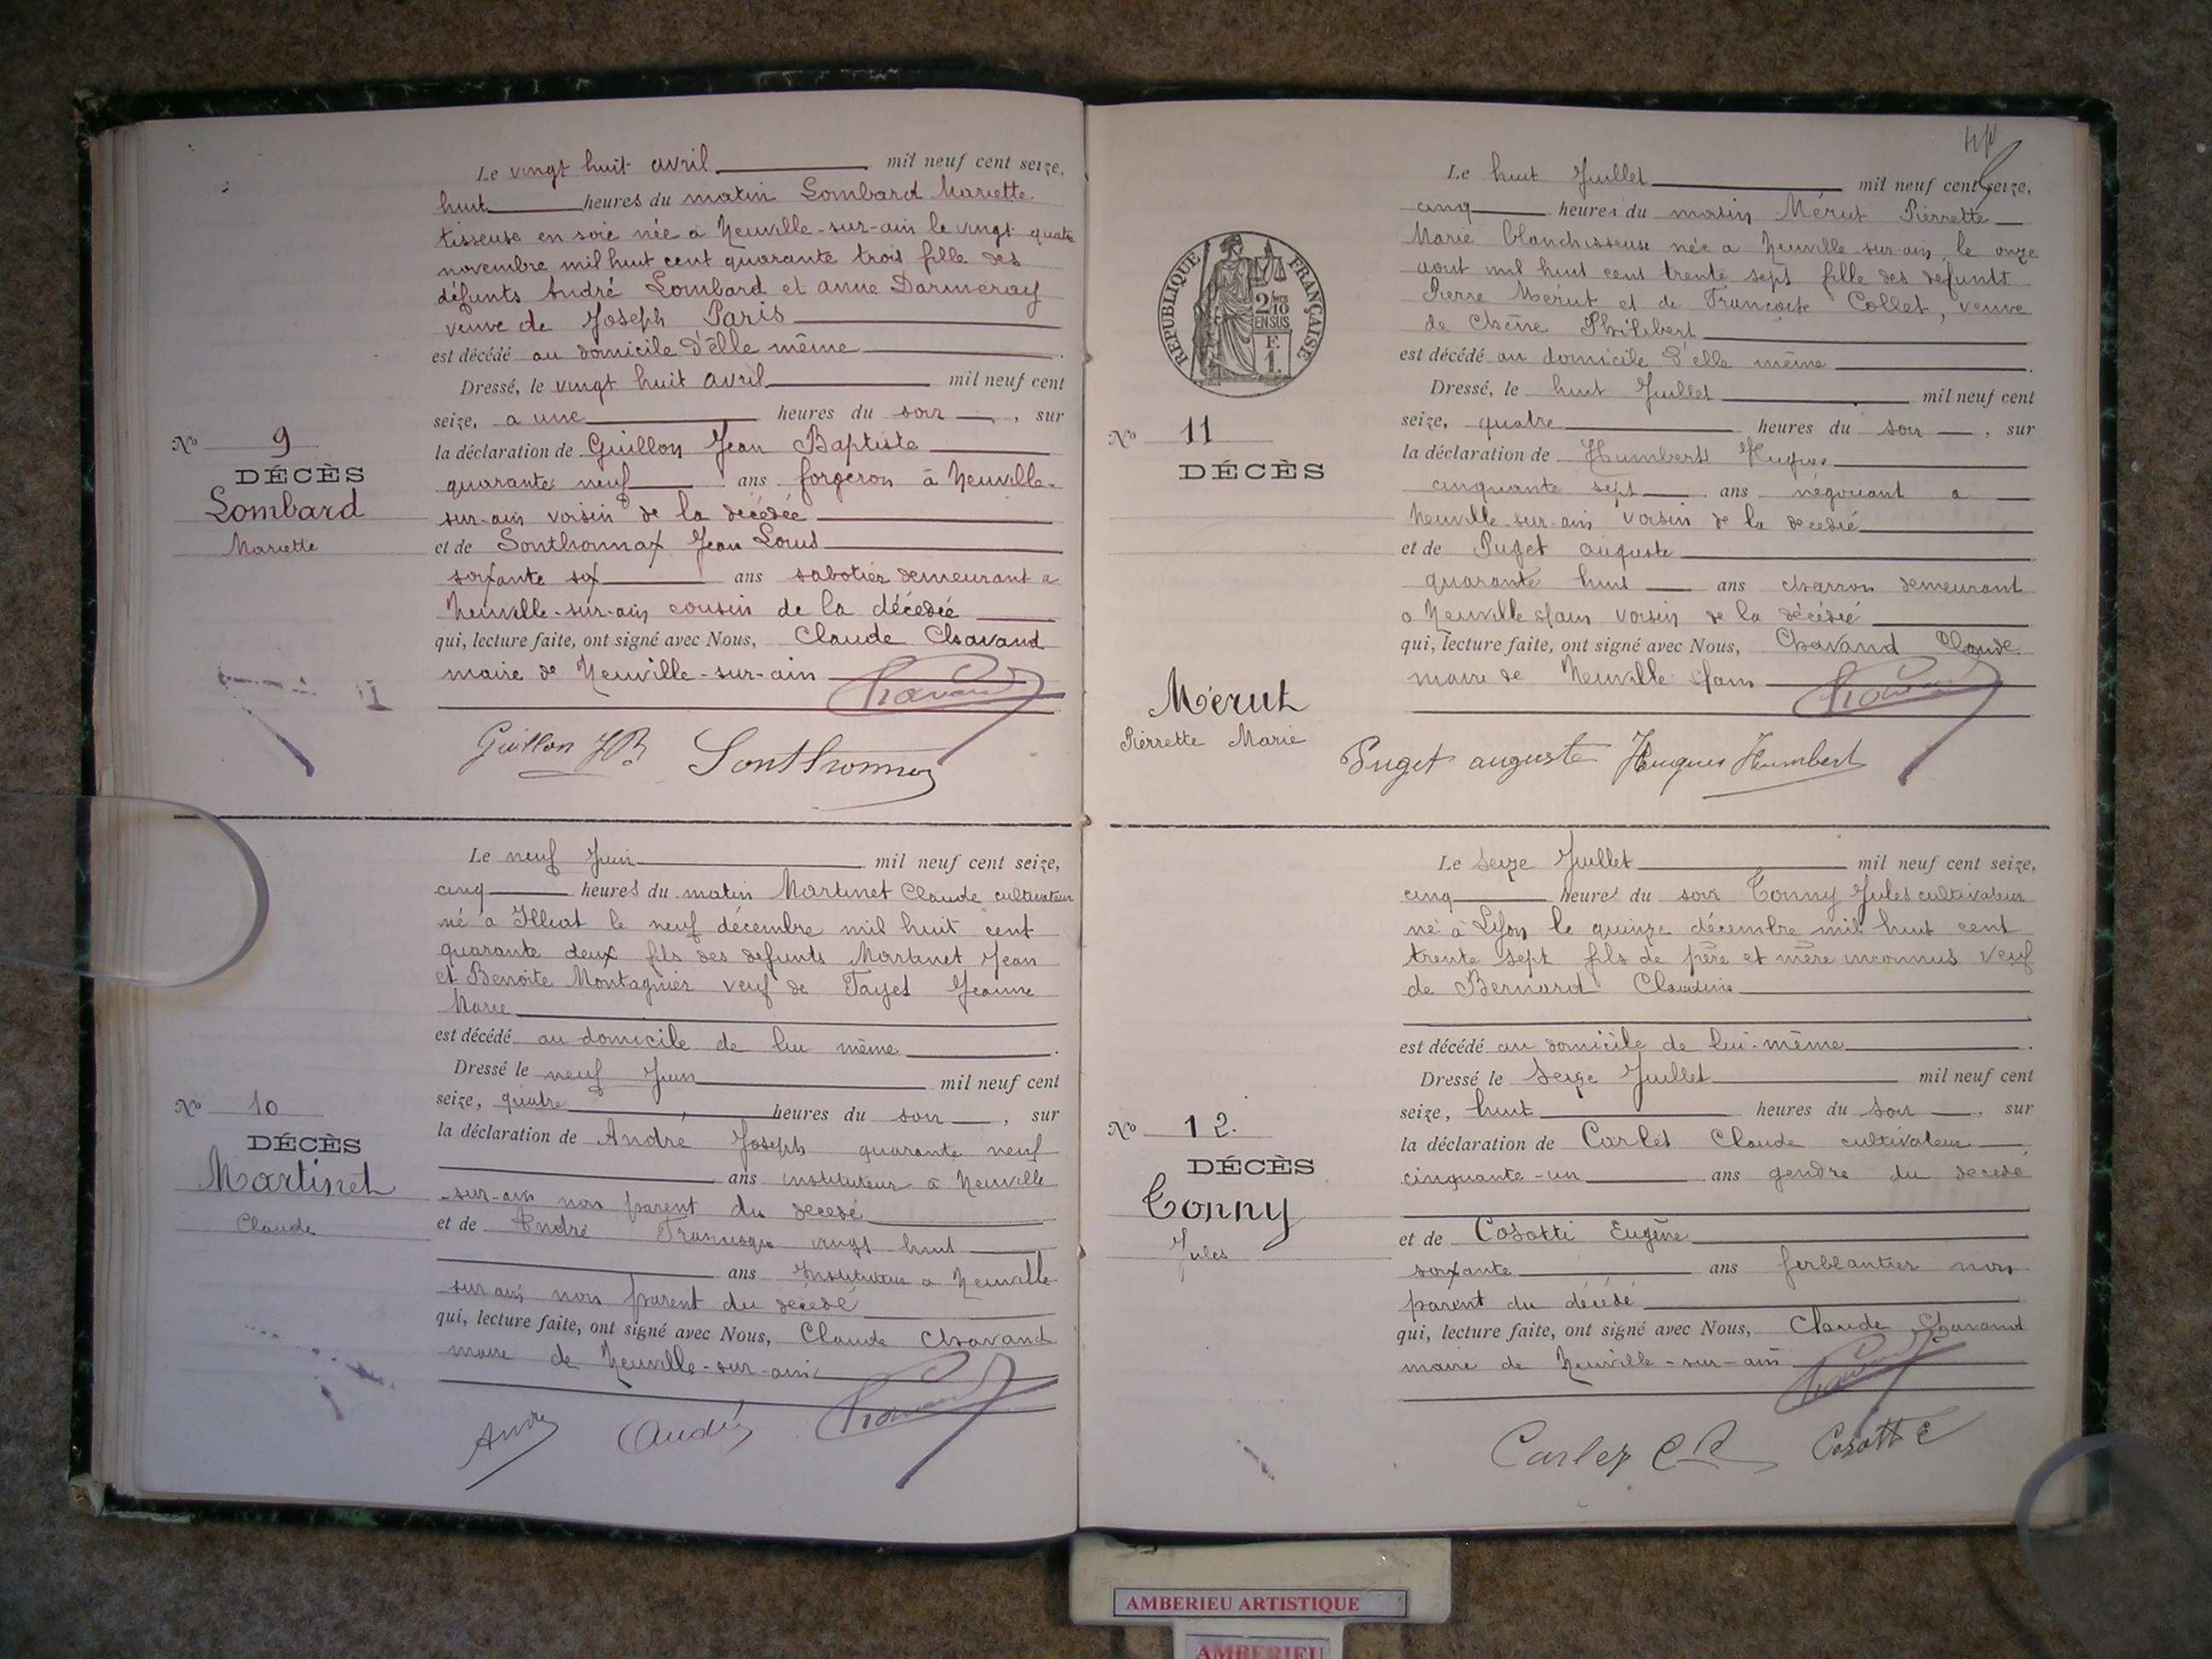 Le vingt huit avril mil neuf cent seize,
huit heures du matin Lombard Mariette
tisseuse en soie née a Neuville-sur-ain le vingt quatre
novembre mil huit cent quarante trois fille des
défunts André Lombard et anne Darmeray
veuve de Joseph Paris
est décédé au domicile d'elle même.
Dressé, le vingt huit avril mil neuf cent
seize, a une heures du soir, sur
la déclaration de Guillon Jean Baptiste
quarante neuf ans forgeron à Neuville-
sur-ain voisin de la décédée
et de Sonthonnax Jean Louis
soixante six ans sabotier demeurant a
Neuville-sur-ain cousin de la décédée
qui, lecture faite, ont signé avec Nous, Claude Chavand
maire de Neuville-sur-ain
Chavand
Guillon JB Sonthonnax
No 9
DÉCÈS
Lombard
Mariette
Le neuf Juin mil neuf cent seize,
cinq heures du matin Martinet Claude cultivateur
né à Illiat le neuf décembre mil huit cent
quarante deux fils des defunts Martinet Jean
et Benoite Montagnier veuf de Tayet Jeanne
Marie
est décédé au domicile de lui même.
Dressé le neuf Juin mil neuf cent
seize, quatre heures du soir, sur
la déclaration de André Joseph quarante neuf
ans instituteur à Neuville
-sur-ain non parent du decedé
et de André Francisque vingt huit
ans Instituteur a Neuville
sur ain non parent du decedé
qui, lecture faite, ont signé avec Nous, Claude Chavand
maire de Neuville-sur-ain
André André Chavand
No 10
DÉCÈS
Martinet
Claude
Le huit Juillet mil neuf cent seize,
cinq heures du matin Mérut Pierrette
Marie blanchisseuse née a Neuville-sur-ain, le onze
aout mil huit cent trente sept fille des defunts
Pierre Mérut et de Françoise Collet, veuve
de Chêne Philibert
est décédé au domicile d'elle même.
Dressé, le huit Juillet mil neuf cent
seize, quatre heures du soir, sur
la déclaration de Humbert Hugues
cinquante sept ans négociant a
Neuville-sur-ain voisin de la decedée
et de Puget auguste
quarante huit ans charron demeurant
a Neuville s/ain voisin de la décédée
qui, lecture faite, ont signé avec Nous, Chavand Claude
maire de Neuville s/ain
Chavand
Puget auguste Hugues Humbert
RÉPUBLIQUE FRANÇAISE
2/10
EN SUS
F.
1.
No 11
DÉCÈS
Mérut
Pierrette Marie
Le seize Juillet mil neuf cent seize,
cinq heures du soir Tonny Jules cultivateur
né à Lyon le quinze décembre mil huit cent
trente sept fils de père et mère inconnus veuf
de Bernard Claudine
est décédé au domicile de lui-même.
Dressé le Seize Juillet mil neuf cent
seize, huit heures du soir, sur
la déclaration de Carlet Claude cultivateur
cinquante-un ans gendre du decedé
et de Cosotti Eugène
soixante ans ferblantier non
parent du décédé
qui, lecture faite, ont signé avec Nous, Claude Chavand
maire de Neuville-sur-ain
Chavand
Carlez Cosotti E
No 12.
DÉCÈS
Tonny
Jules
AMBERIEU ARTISTIQUE
AMBERIEU